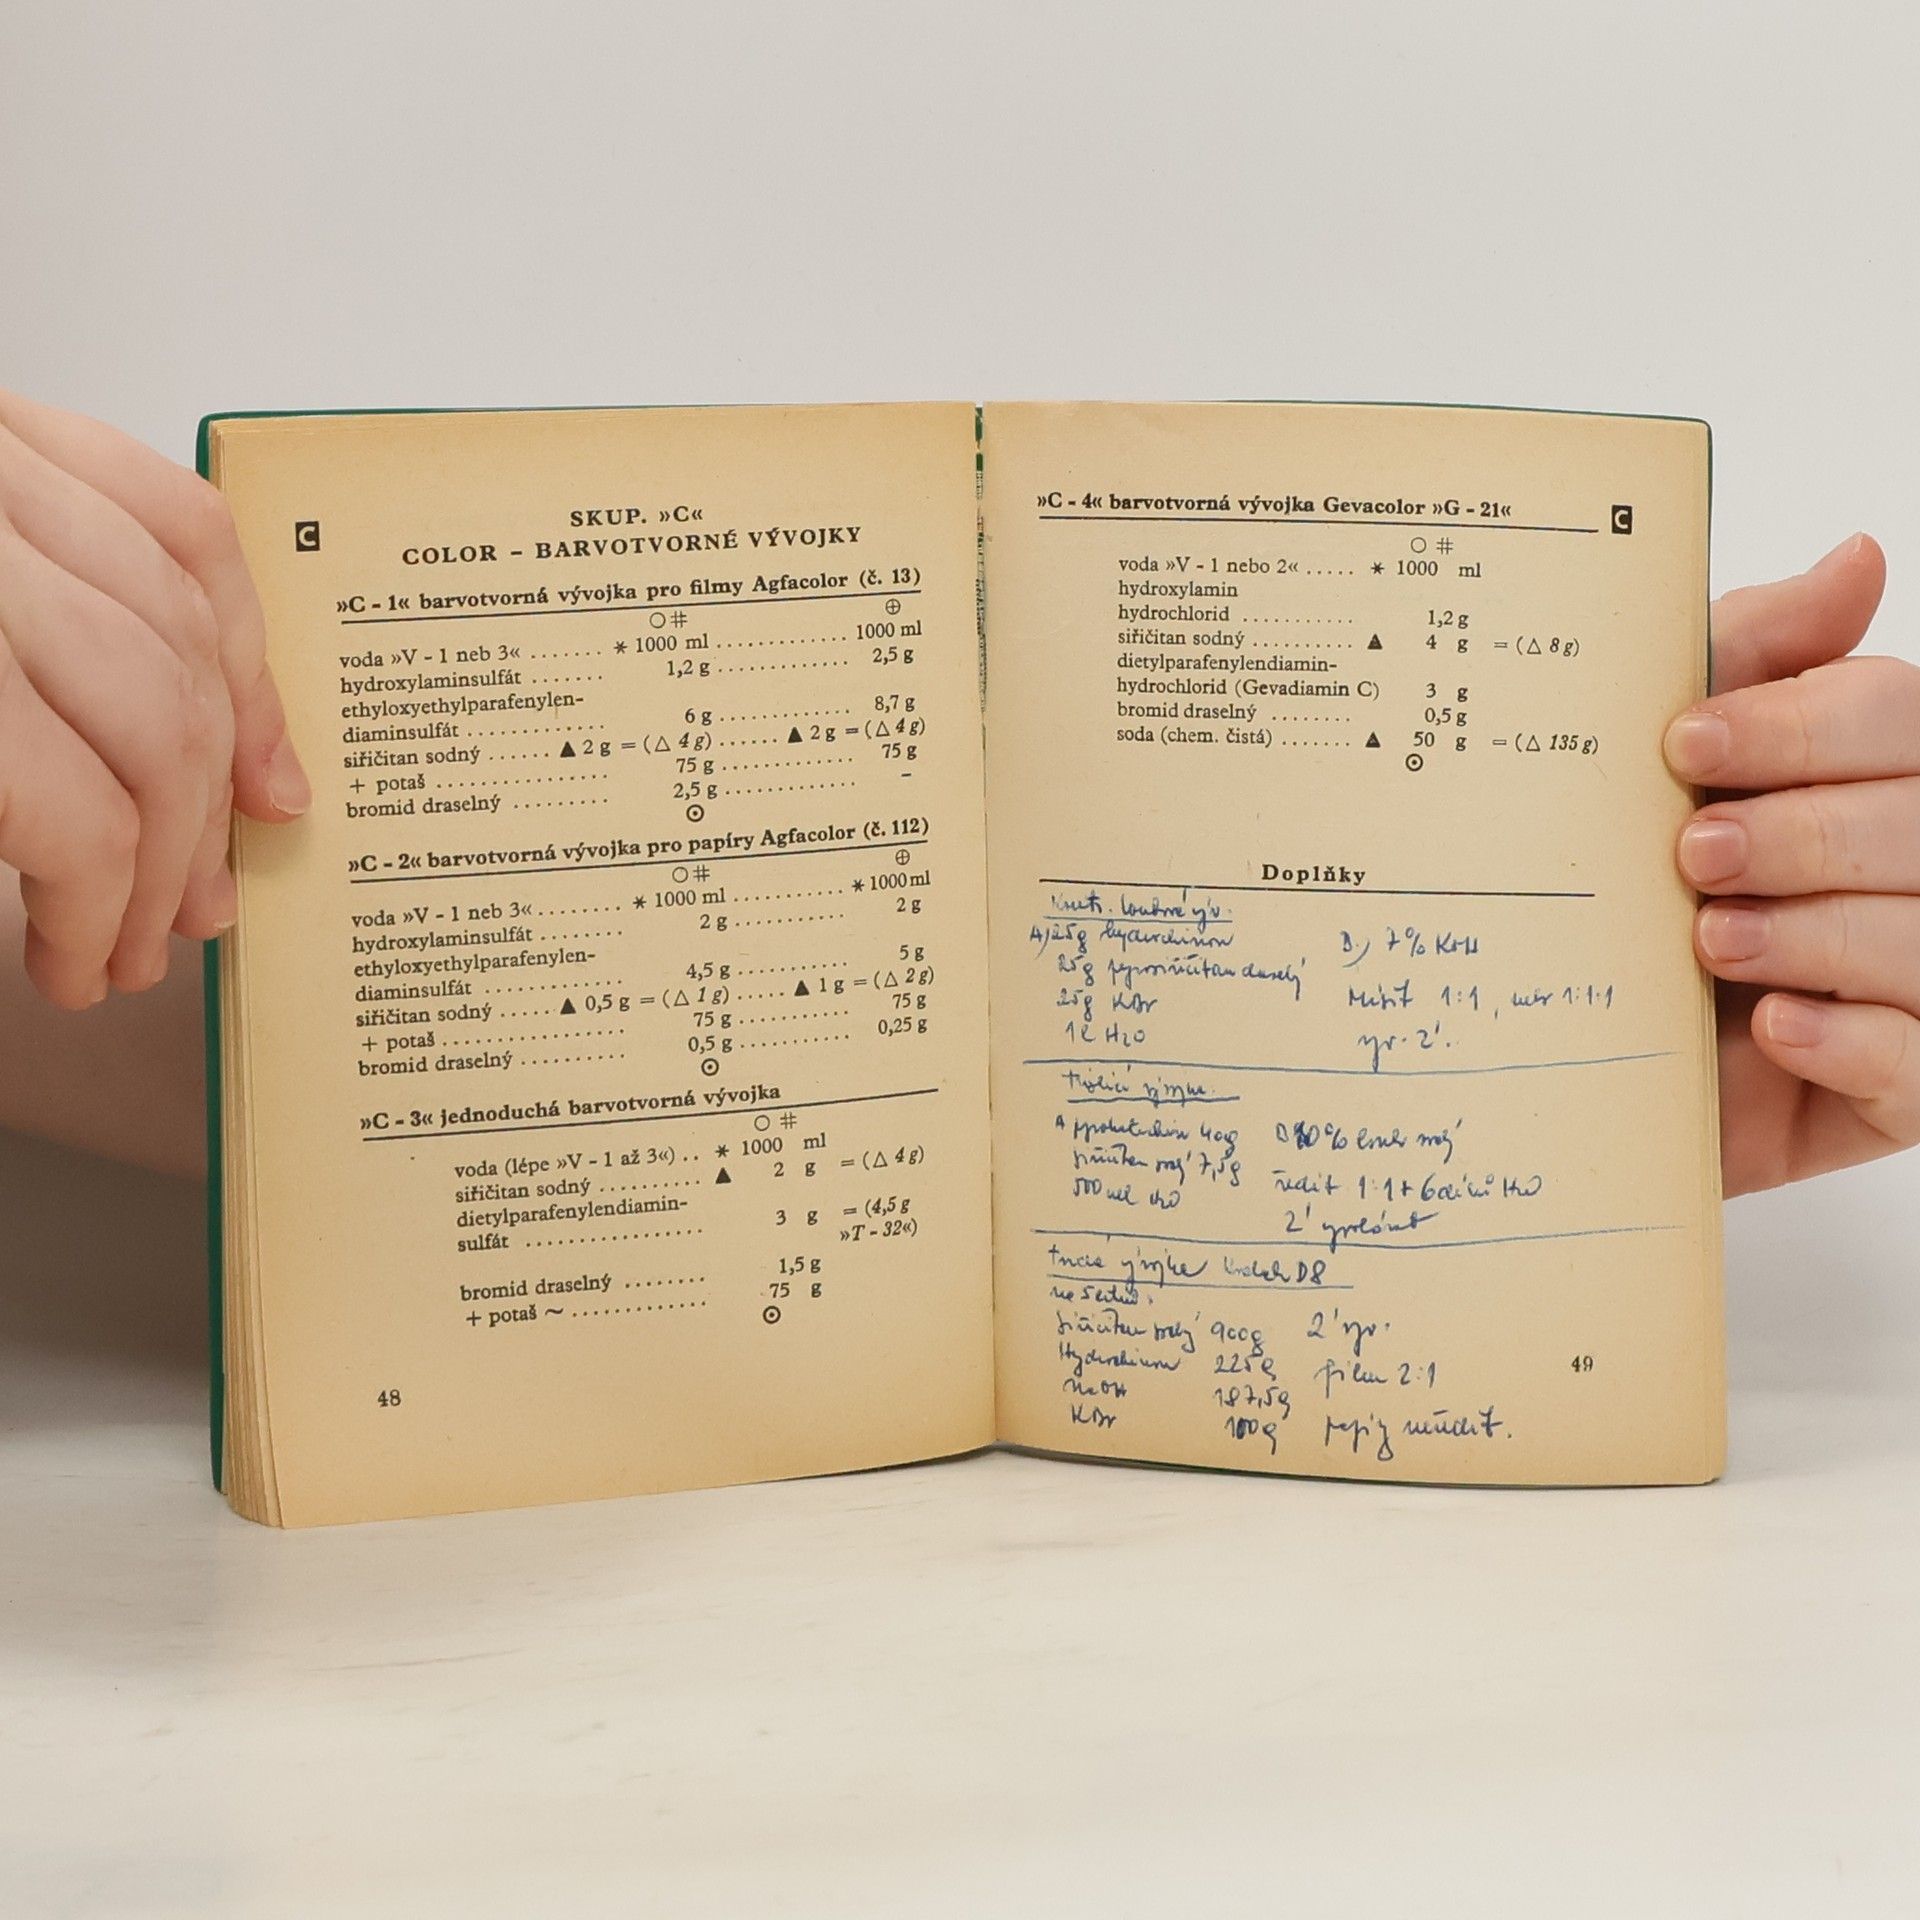 C
SKUP. »C«
COLOR – BARVOTVORNÉ VÝVOJKY
»C - 1« barvotvorná vývojka pro filmy Agfacolor (č. 13)
○ # ⊕
voda »V - 1 neb 3« ....... * 1000 ml ............ 1000 ml
hydroxylaminsulfát ....... 1,2 g ............ 2,5 g
ethyloxyethylparafenylen-
diaminsulfát ............ 6 g ............ 8,7 g
siřičitan sodný ...... ▲ 2 g = (△ 4 g) ...... ▲ 2 g = (△ 4 g)
+ potaš ................ 75 g ............ 75 g
bromid draselný ......... 2,5 g ............ –
⊙
»C - 2« barvotvorná vývojka pro papíry Agfacolor (č. 112)
○ # ⊕
voda »V - 1 neb 3«........ * 1000 ml .......... * 1000 ml
hydroxylaminsulfát ........ 2 g .......... 2 g
ethyloxyethylparafenylen-
diaminsulfát ............. 4,5 g .......... 5 g
siřičitan sodný ..... ▲ 0,5 g = (△ 1 g) ..... ▲ 1 g = (△ 2 g)
+ potaš ................ 75 g .......... 75 g
bromid draselný .......... 0,5 g .......... 0,25 g
⊙
»C - 3« jednoduchá barvotvorná vývojka
○ #
voda (lépe »V - 1 až 3«) .. * 1000 ml
siřičitan sodný .......... ▲ 2 g = (△ 4 g)
dietylparafenylendiamin-
sulfát ................. 3 g = (4,5 g
»T - 32«)
bromid draselný ........ 1,5 g
+ potaš ~ ............. 75 g
⊙
48
»C - 4« barvotvorná vývojka Gevacolor »G - 21«
C
○ #
voda »V - 1 nebo 2« ..... * 1000 ml
hydroxylamin
hydrochlorid ........... 1,2 g
siřičitan sodný .......... ▲ 4 g = (△ 8 g)
dietylparafenylendiamin-
hydrochlorid (Gevadiamin C) 3 g
bromid draselný ........ 0,5 g
soda (chem. čistá) ....... ▲ 50 g = (△ 135 g)
⊙
Doplňky
A) 25g hydrochinon B.) 7% KOH
25g
25g KBr 1:1, 1:1:1
1l H2O 2'.
A 40g B
7,5g 1:1 + 6 dílů H2O
500 ml H2O 2'
vývojka Kodak D8
siřičitan sodný 900g 2' vyv.
Hydrochinon 225g film 2:1
NaOH 187,5g
KBr 100g papíry neředit.
49